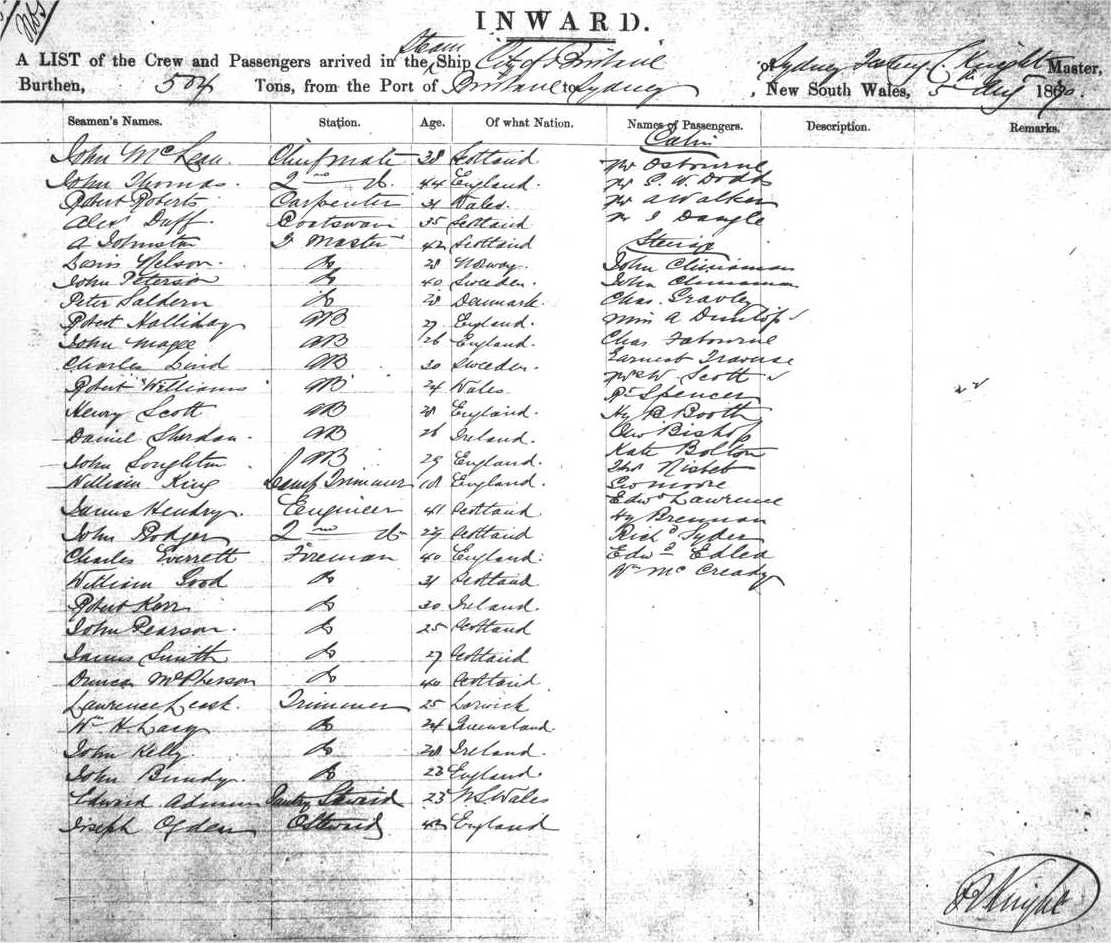 INWARD.
A LIST of the Crew and Passengers arrived in the Steam Ship City of Brisbane of Sydney Knight Master,
Burthen, 504 Tons, from the Port of Brisbane to Sydney, New South Wales, 5th Aug 18
Seamen's Names. Station. Age. Of what Nation. Names of Passengers. Description. Remarks.
Cabin
John McLean Chief mate 38 Scotland Mr Osbourne
John Thomas 2nd do. 44 England Dodds
Robert Roberts Carpenter 31 Wales. Mr A Walker
Alexr Duff Boatswain 35 Scotland Dangle
A Johnston Master 42 Scotland Steerage
Nelson. do 28 Norway. John Chinaman
John Peterson do 40 Sweden. John Chinaman
Peter Saldern do 28 Denmark. Chas. Gravley
Robert Halliday AB 27 England. Miss A Dunlop
John Magee AB 26 England. Chas
Charles Lind AB 30 Sweden. Earnest Traverse
Robert Williams AB 24 Wales Scott
Henry Scott AB 28 England. Spencer
Daniel Sherdan AB 26 Ireland. Hy B Booth
John AB 29 England. Bishop
William King Lamp Trimmer 18 England. Kate Bolton
James Hendry Engineer 41 Scotland Thos Nisbet
John Rodger 2nd do 29 Scotland Geo Moore
Charles Everett Fireman 40 England. Edwd Lawrence
William Good do 31 Scotland Hy Brennan
Robert Kerr do 30 Ireland. Richd Syder
John Pearson. do 25 Scotland Edwd
James Smith do 27 Scotland Wm McCready
Duncan McPherson do 40 Scotland
Lawrence Leask. Trimmer 25 Lerwick
Wm H Lacy do 24 Queensland.
John Kelly. do 28 Ireland.
John Bundy. do 23 England.
Edward Pantry Steward 23 N S Wales
Joseph Ogden 42 England
Knight